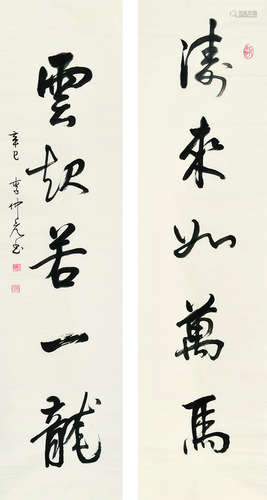 濤來如萬馬
雲起若一龍
辛巳 李仲元書